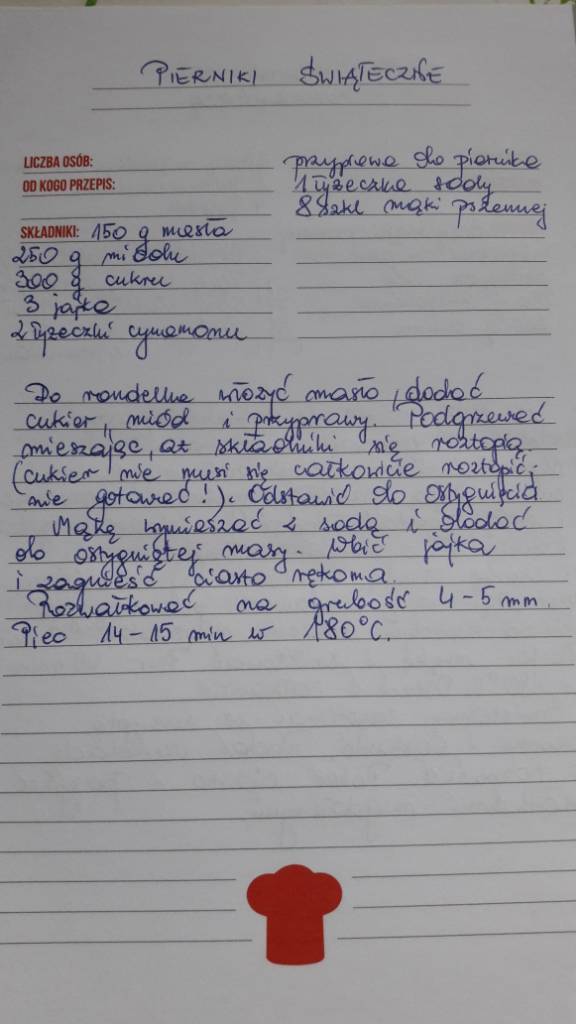 PIERNIKI ŚWIĄTECZNE
LICZBA OSÓB:
OD KOGO PRZEPIS:
SKŁADNIKI: 150 g masła
250 g miodu
300 g cukru
3 jajka
2 łyżeczki cynamonu
przyprawa do piernika
1 łyżeczka sody
8 szkl mąki pszennej
Do rondelka włożyć masło, dodać
cukier, miód i przyprawy. Podgrzewać
mieszając, aż składniki się roztopią.
(cukier nie musi się całkowicie roztopić;
nie gotować!). Odstawić do ostygnięcia
Mąkę wymieszać z sodą i dodać
do ostygniętej masy. Wbić jajka
i zagnieść ciasto rękoma.
Rozwałkować na grubość 4-5 mm.
Piec 14-15 min w 180°C.